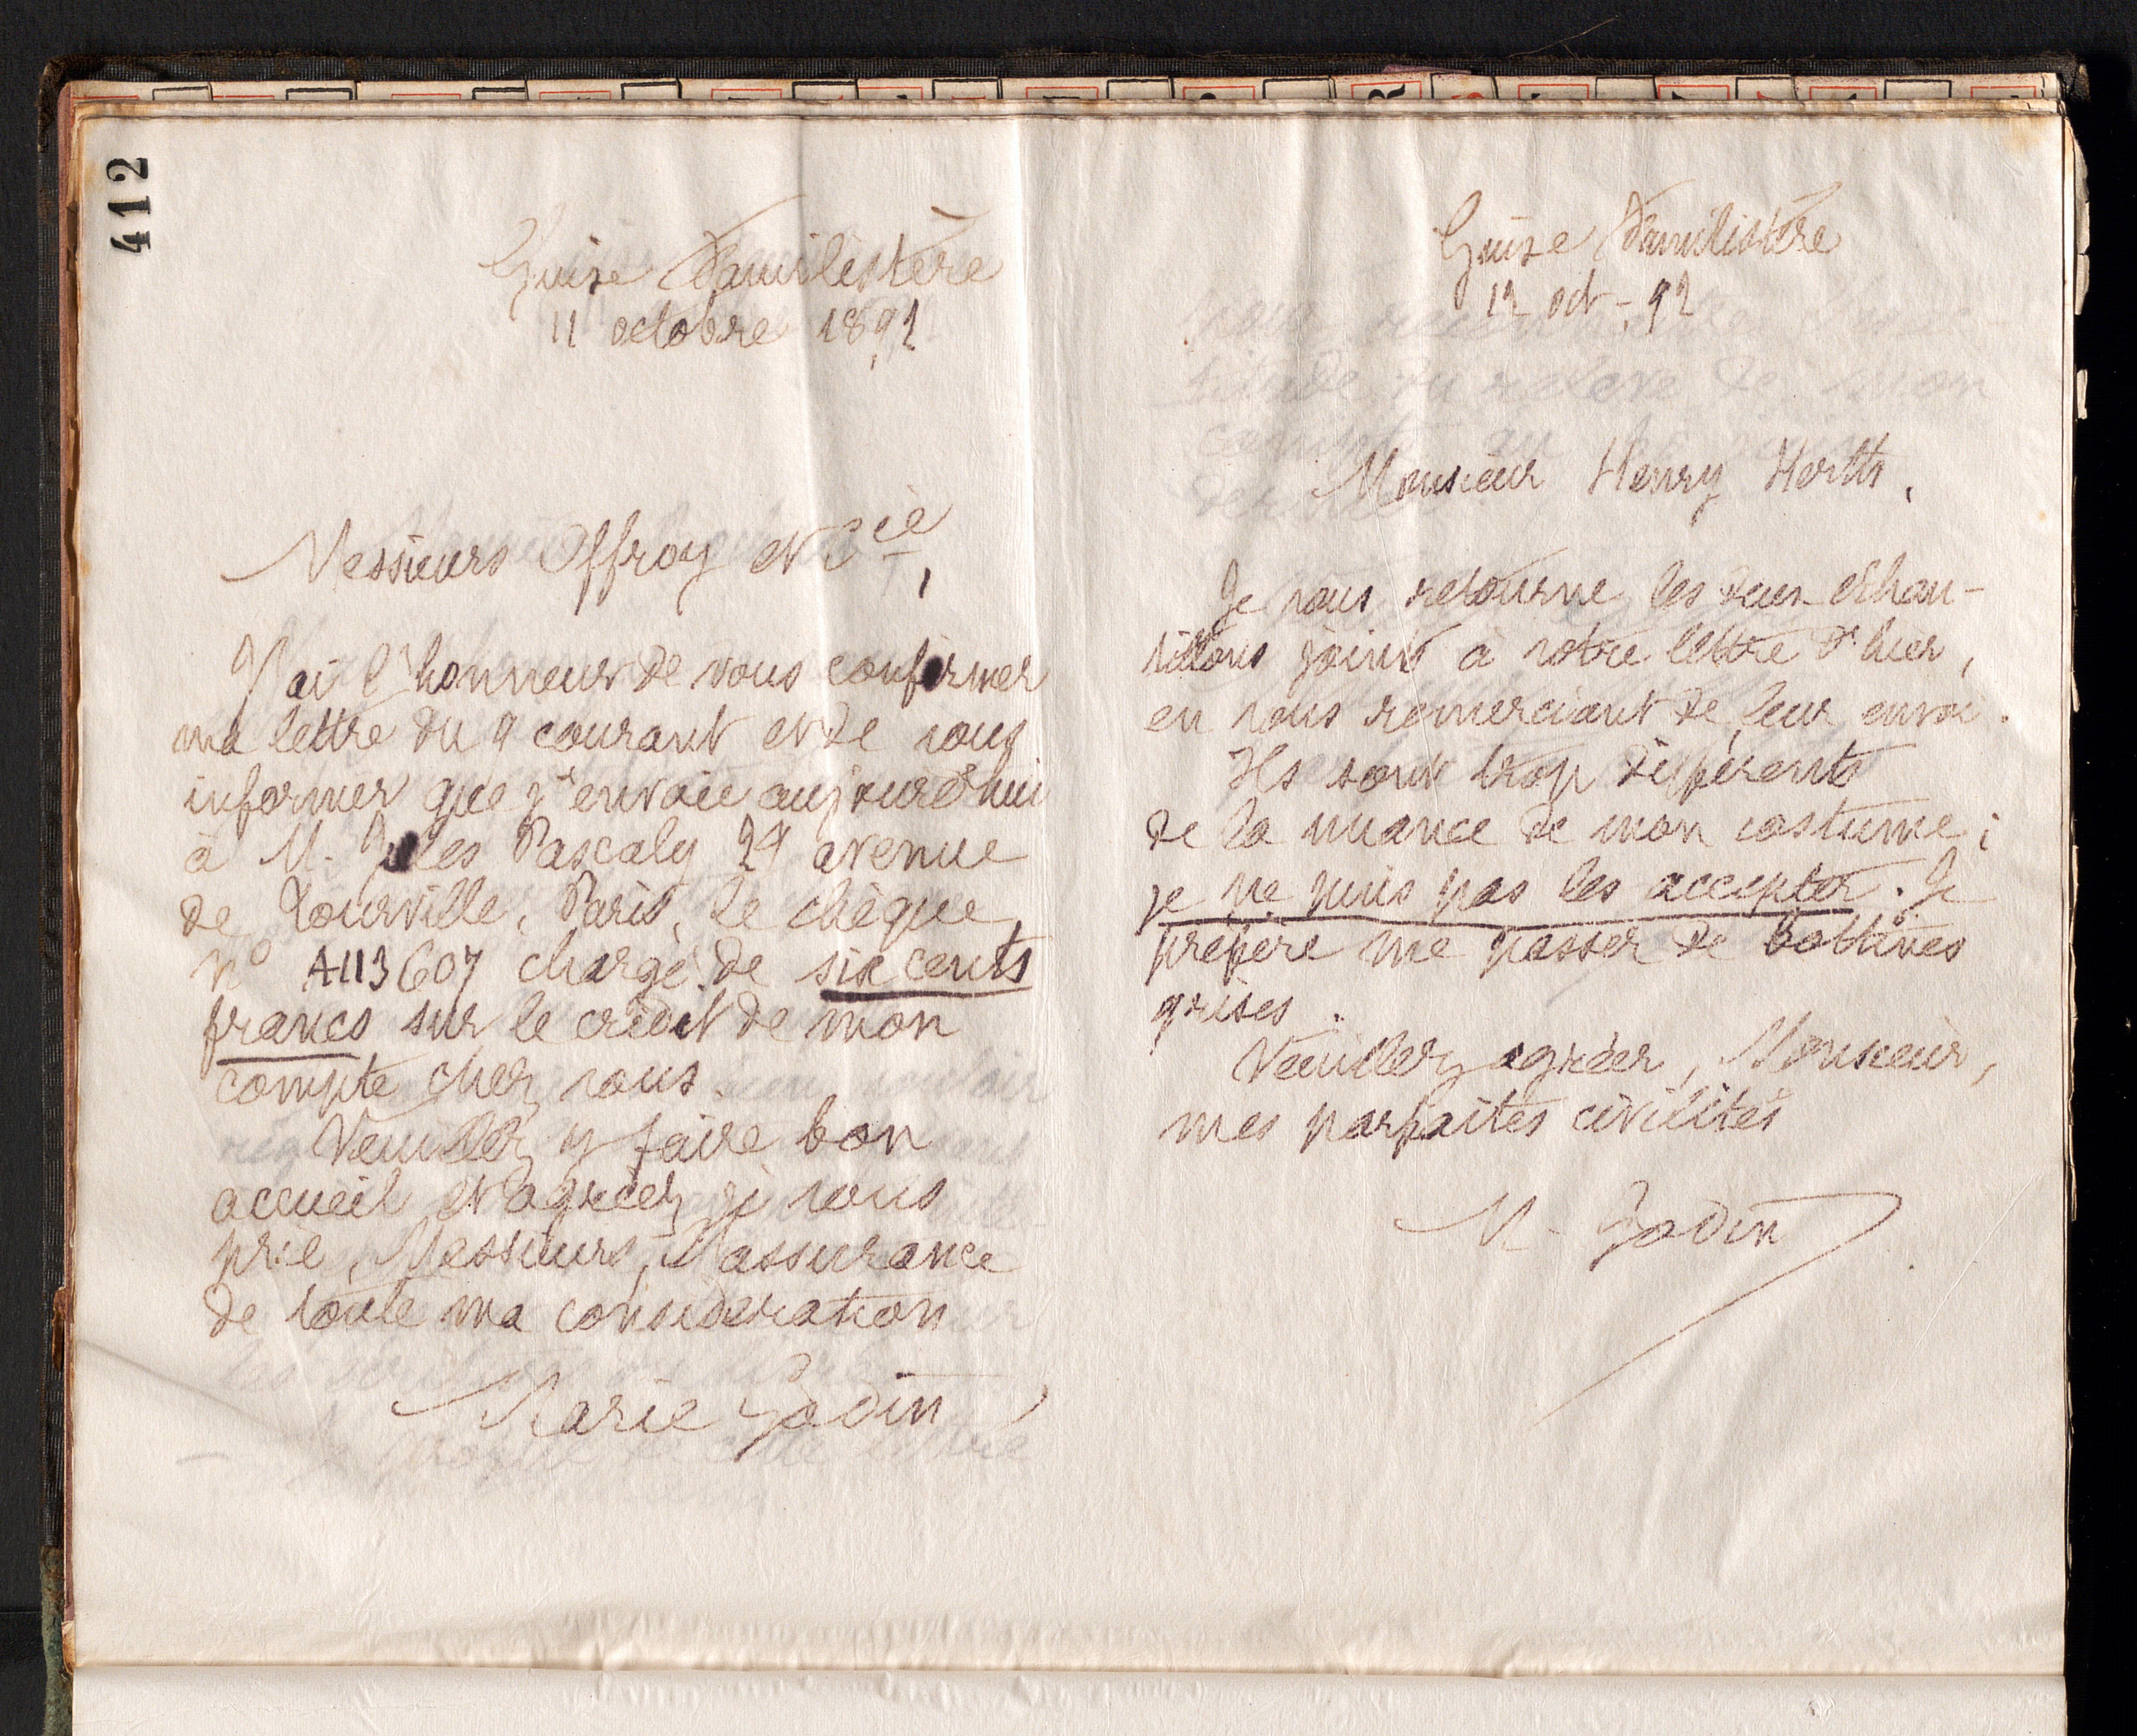 412
Guise Familistère
11 octobre 1892
Messieurs Offroy et Cie,
J'ai l'honneur de vous confirmer
ma lettre du 9 courant et de vous
informer que j'envoie aujourd'hui
à M. Jules Pascaly 27 avenue
de Tourville, Paris, le chèque
n° A113607 chargé de six cents
francs sur le crédit de mon
compte chez vous.
Veuillez y faire bon
accueil et agréez, je vous
prie, Messieurs, l'assurance
de toute ma considération
Marie Godin
Guise Familistère
12 oct. 92
Monsieur Henry Herth,
Je vous retourne les deux échan-
tillons joints à votre lettre d'hier,
en vous remerciant de leur envoi.
Ils sont trop différents
de la nuance de mon costume ;
je ne puis pas les accepter. Je
préfère me passer de bottines
grises.
Veuillez agréer, Monsieur,
mes parfaites civilités
M. Godin